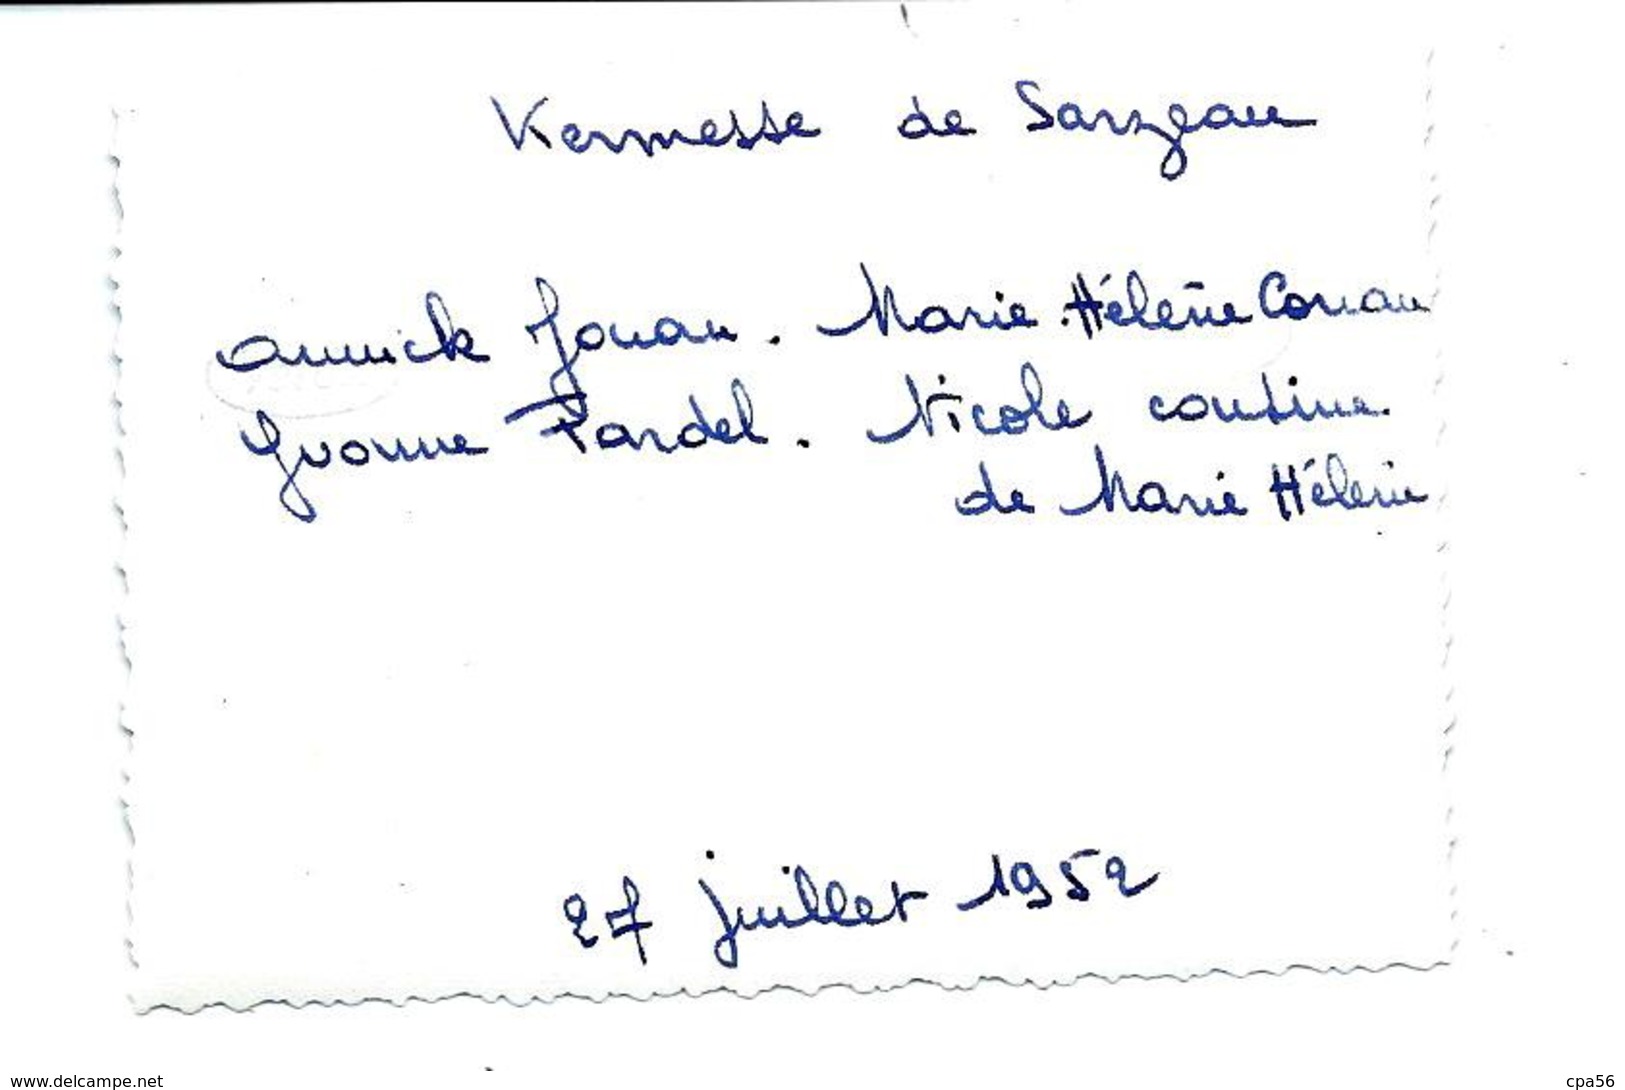 Kermesse de Sarzeau
Annick Jouan. Marie.Hélène Conan
Yvonne Pardel. Nicole cousine
de Marie Hélène
27 juillet 1952
www.delcampe.net
cpa56